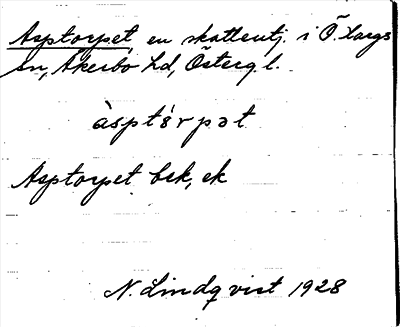 Asptorpet, en skattentj. i Ö. Largs
sn, Åkerbo hd, Österg. l.
àsptórpət
Asptorpet bek, ek
N. Lindqvist 1928